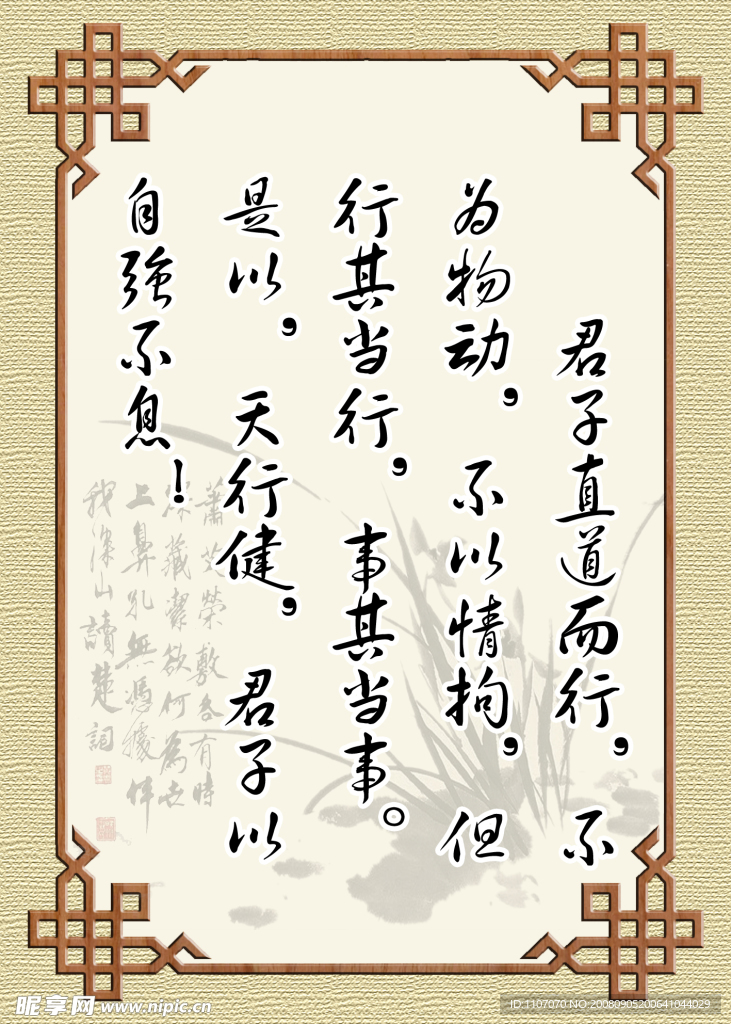 君子直道而行，不
为物动，不以情拘，但
行其当行，事其当事。
是以，天行健，君子以
自強不息！
蕭艾榮敷各有時
深藏潔欲何為世
上鼻孔無馮據伴
我深山讀楚詞
昵享网 www.nipic.cn
ID:1107070 NO:20080905200641044029